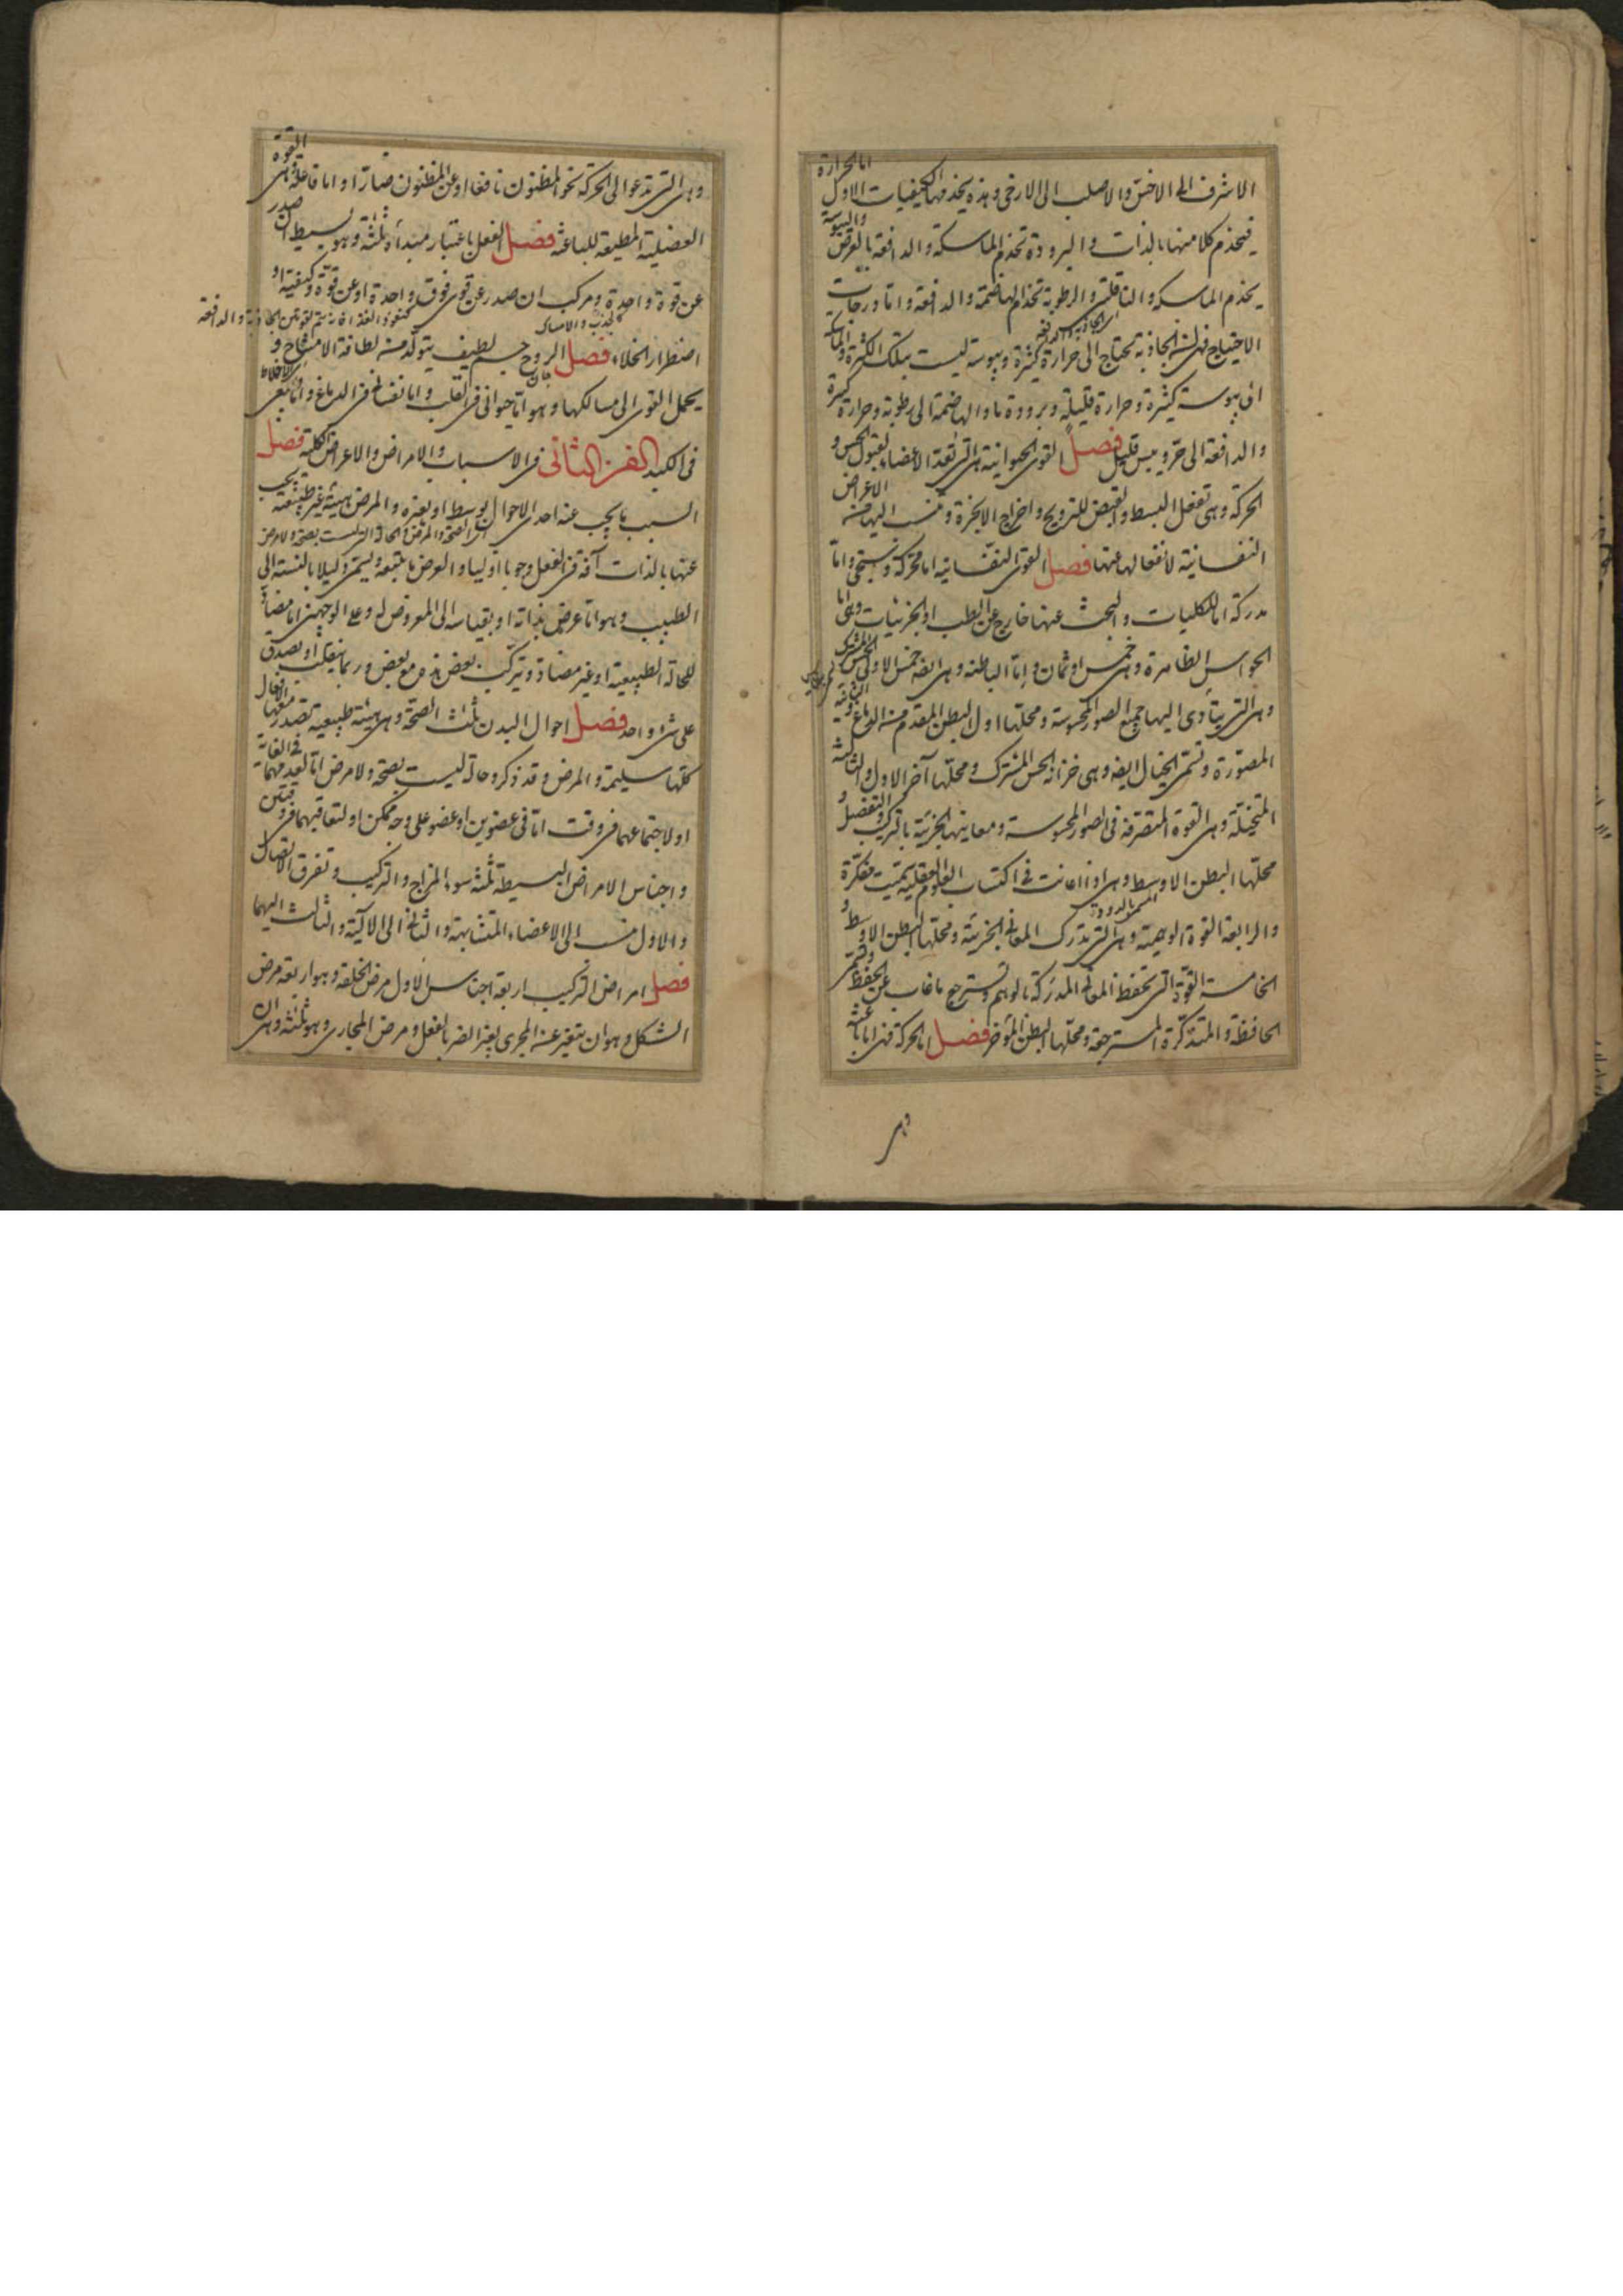 الاشرف الى الاخس والاصلب الى الارخى وهذه يخدمها الكيفيات الاول اما الحرارة
فيخدم كلا منها بالذات والبرودة تخدم الماسكة والدافعة بالعرض واليبوسة
يخدم الماسكة والناقلة والرطوبة تخدم الهاضمة والدافعة واما درجات
الاحتياج فهى ان الجاذبة تحتاج الى حرارة كثيرة ويبوسة ليست بتلك الكثرة والماسكة
الى يبوسة كثيرة وحرارة قليلة وبرودة ما والهاضمة الى رطوبة وحرارة كثيرة
والدافعة الى حر ويبس قليل فصل القوى الحيوانية هى التى تعد الاعضاء لقبول الحس و
الحركة وهى تفعل البسط والقبض للترويح واخراج الابخرة وتنسب اليها من الاعراض
النفسانية لانفعالها عنها فصل القوى النفسانية اما محركة وستجئ واما
مدركة اما للكليات والبحث عنها خارج عن الطب او الجزئيات وهى اما
الحواس الظاهرة وهى خمس او ثمان واما الباطنة وهى ايضه خمس الاولى الحس المشترك
وهى التى يتأدى اليها جميع الصور المحسوسة ومحلها اول البطن المقدم من الدماغ الثانية
المصورة وتسمى الخيال ايضه وهى خزانة الحس المشترك ومحلها آخر الاول والثالثة
المتخيلة وهى القوة المتصرفة فى الصور المحسوسة ومعانيها الجزئية بالتركيب والتفصيل و
محلها البطن الاوسط وهى اذا اعانت فى اكتساب العلوم العقلية سميت مفكرة
المسمى بالدودة
والرابعة القوة الوهمية وهى التى تدرك المعانى الجزئية ومحلها البطن الاوسط و
الخامسة القوة التى تحفظ المعانى المدركة بالوهم وتسترجع ما غاب عن الحفظ وتسمى
الحافظة والمتذكرة والمسترجعة ومحلها البطن المؤخر فصل اما الحركة فهى اما باعثة
وهى
وهى التى تدعو الى الحركة نحو المظنون نافعا او عن المظنون ضارا واما فاعلة وهى القوة
العضلية المطيعة للباعثة فصل الفعل باعتبار مبدأه ثلثة وهو بسيط ان صدر
عن قوة واحدة ومركب ان صدر عن قوى فوق واحدة او عن قوة وكيفية او
كالجذب والامساك
كنفوذ الغذا فانه يتم بقوتين الجاذبة والدافعة
اضطرار الخلاء فصل الروح جسم لطيف يتولد من لطافة الامشاج و
اى الاخلاط
يحمل القوى الى مسالكها وهو اما حيوانى فى القلب واما نفسانى فى الدماغ واما طبيعى
فى الكبد الفن الثانى فى الاسباب والامراض والاعراض الكلية فصل
السبب ما يجب عنه احدى الاحوال بوسط او بغيره والمرض هيئة غير طبيعية يجب
اى الصحة والمرض والحالة التى ليست بصحة ولا مرض
عنها بالذات آفة فى الفعل وجوبا اوليا والعرض ما يتبعه ويسمى دليلا بالنسبة الى
الطبيب وهو اما عرض بذاته او بقياسه الى المعروض له وعلى الوجهين اما مضاد
للحالة الطبيعية او غير مضاد وتركب بعض هذه مع بعض وربما ينقلب او يصدق
على شئ واحد فصل احوال البدن ثلث الصحة وهى هيئة طبيعية تصدر معها الافعال
كلها سليمة والمرض وقد ذكر وحالة ليست بصحة ولا مرض اما لعدمهما فى الغاية
او لاجتماعهما فى وقت اما فى عضوين او عضو على وجه ممكن او لتعاقبهما فى وقتين
واجناس الامراض البسيطة ثلثة سوء المزاج والتركيب وتفرق الاتصال
والاول منسب الى الاعضاء المتشابهة والثانى الى الآلية والثالث اليهما
فصل امراض التركيب اربعة اجناس الاول مرض الخلقة وهو اربعة مرض
الشكل وهو ان يتغير عنه المجرى تغيرا يضر بالفعل ومرض المجارى وهو ثلثة وهى ان